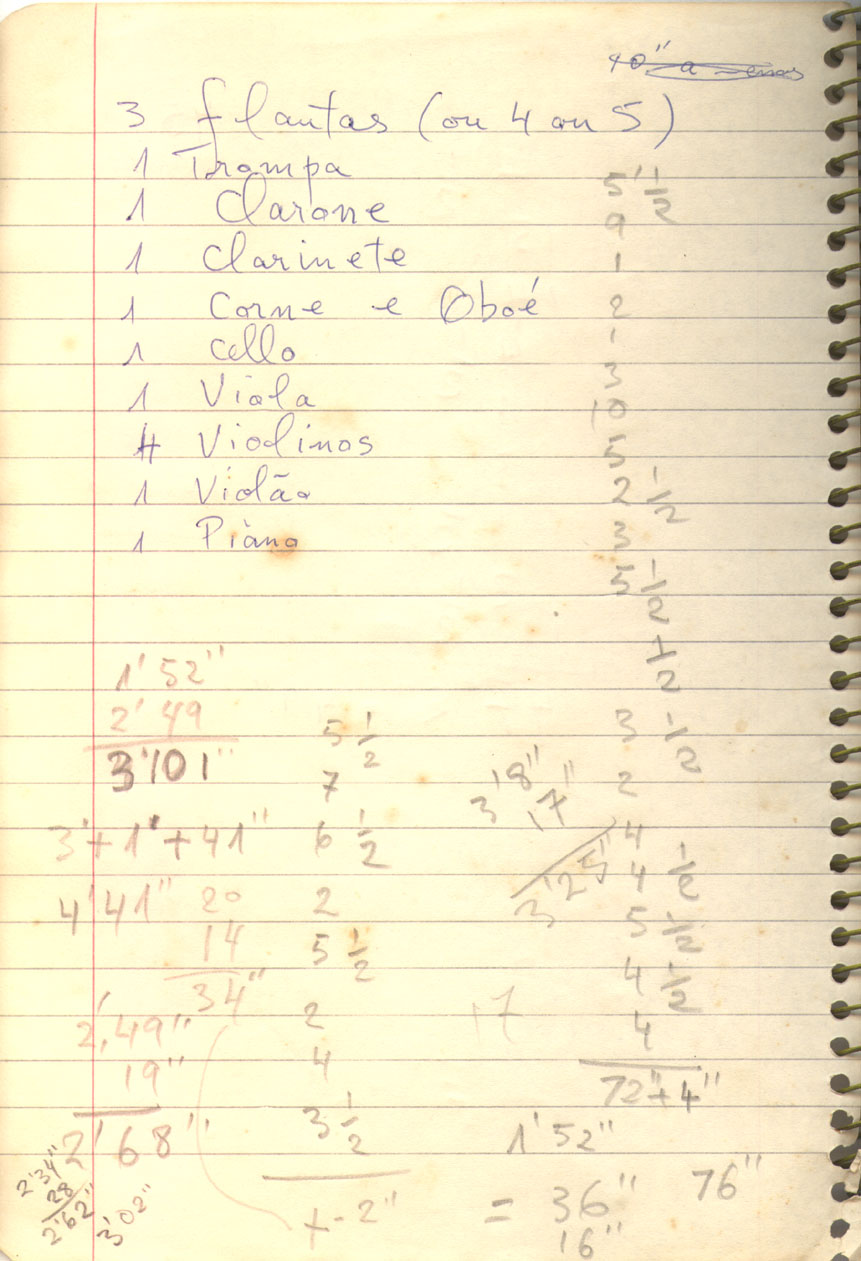 40" a
3 flautas (ou 4 ou 5)
1 Trompa
1 Clarone
1 Clarinete
1 Corne e Oboé
1 Cello
1 Viola
4 Violinos
1 Violão
1 Piano
5' 1/2
9
1
2
1
3
10
5
2 1/2
3
5 1/2
1/2
3 1/2
2
4
4 1/2
5 1/2
4 1/2
4
72" + 4"
76"
1' 52"
2' 49
3' 01"
3' + 1' + 41"
4' 41"
20
14
34"
2' 49"
19"
2' 68"
2'34"
28
2'62"
3'02"
5 1/2
7
6 1/2
2
5 1/2
2
4
3 1/2
+-2"
3' 8"
17"
3' 25"
17
1' 52"
= 36"
16"